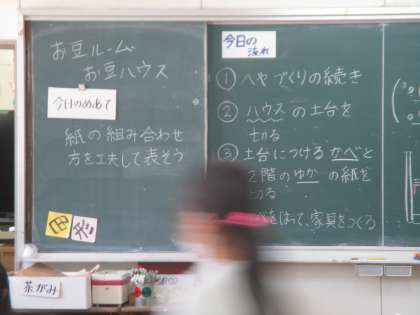 お豆ルーム
お豆ハウス
今日のめあて
紙の組み合わせ
方を工夫して表そう
今日の
流れ
① へやづくりの続き
② ハウスの土台を
切る
③ 土台につけるかべと
2階のゆかの紙を
切る
をはって、家具をつくる
茶がみ